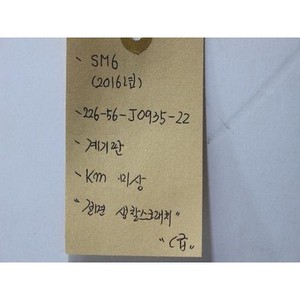 - SM6
(2016년)
- 226-56-J0935-22
- 계기판
- Km 미상
"전면 생활스크래치"
"C급"